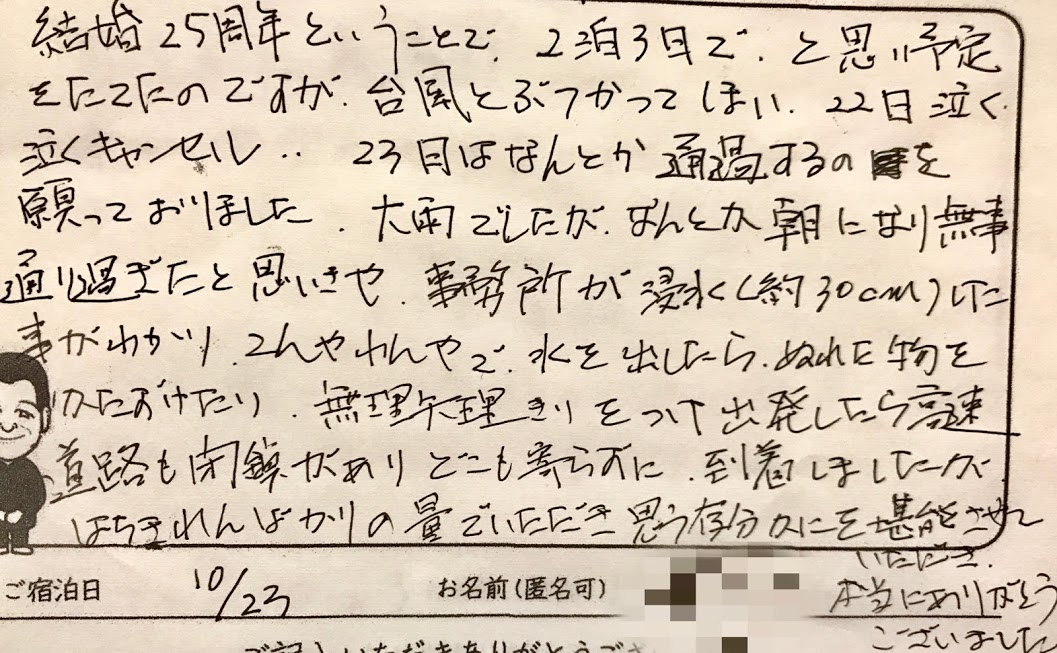 結婚25周年ということで、2泊3日で、と思い予定
をたてたのですが、台風とぶつかってしまい、22日泣く
泣くキャンセル‥ 23日はなんとか通過するのを
願っておりました、大雨でしたが、なんとか朝になり無事
通り過ぎたと思いきや、事務所が浸水(約30cm)した
事がわかり、てんやわんやで、水を出したり、ぬれた物を
かたづけたり、無理矢理きりをつけ出発したら高速
道路も閉鎖がありどこも寄らずに、到着しましたが
はちきれんばかりの量でいただき思う存分カニを堪能させて
いただき、
本当にありがとう
ございました
ご宿泊日 10/23 お名前(匿名可)
ご記入いただきありがとうござ